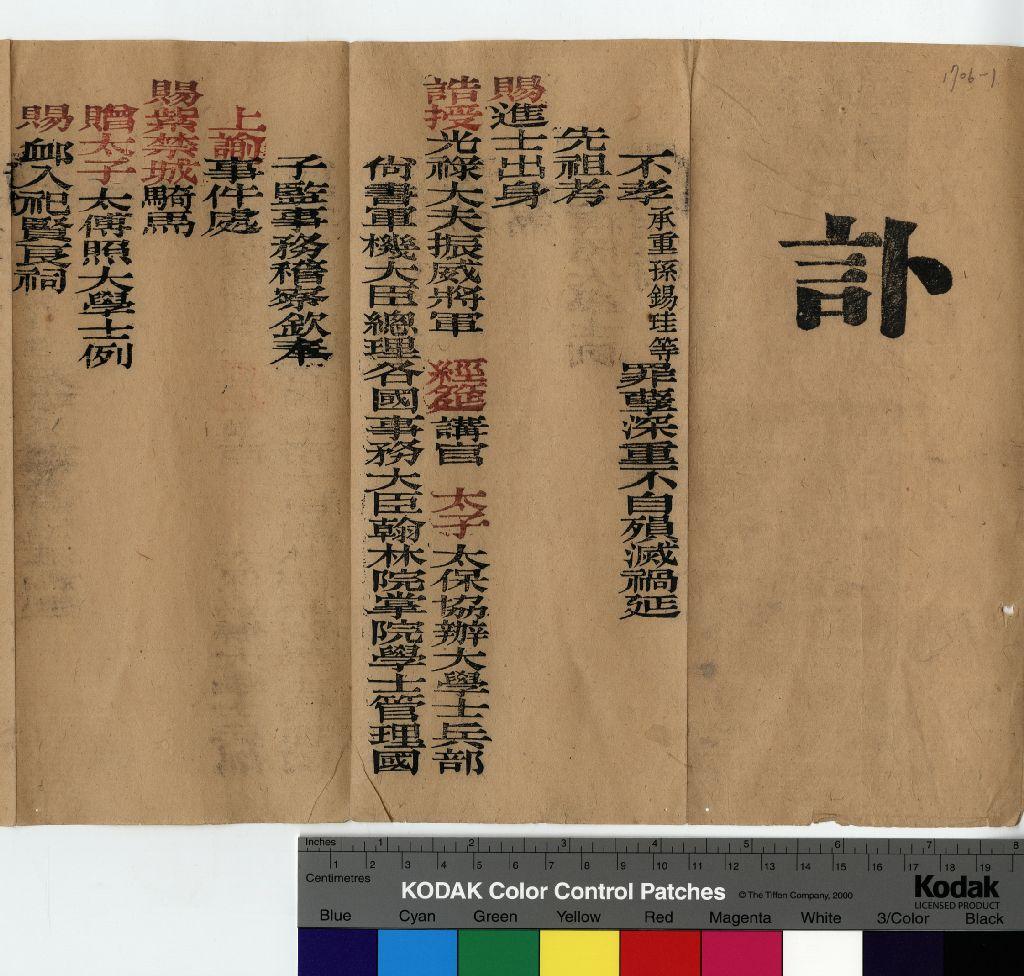 1706-1
訃
不孝承重孫錫珪等罪孽深重不自殞滅禍延
先祖考
賜進士出身
誥授光祿大夫振威將軍 經筵講官 太子太保協辦大學士兵部
尚書軍機大臣總理各國事務大臣翰林院掌院學士管理國
子監事務稽察欽奉
上諭事件處
賜紫禁城騎馬
贈太子太傅照大學士例
賜䘏入祀賢良祠
Inches 1 2 3 4 5 6 7 8
Centimetres 1 2 3 4 5 6 7 8 9 10 11 12 13 14 15 16 17 18 19
KODAK Color Control Patches © The Tiffen Company, 2000 Kodak
LICENSED PRODUCT
Blue Cyan Green Yellow Red Magenta White 3/Color Black